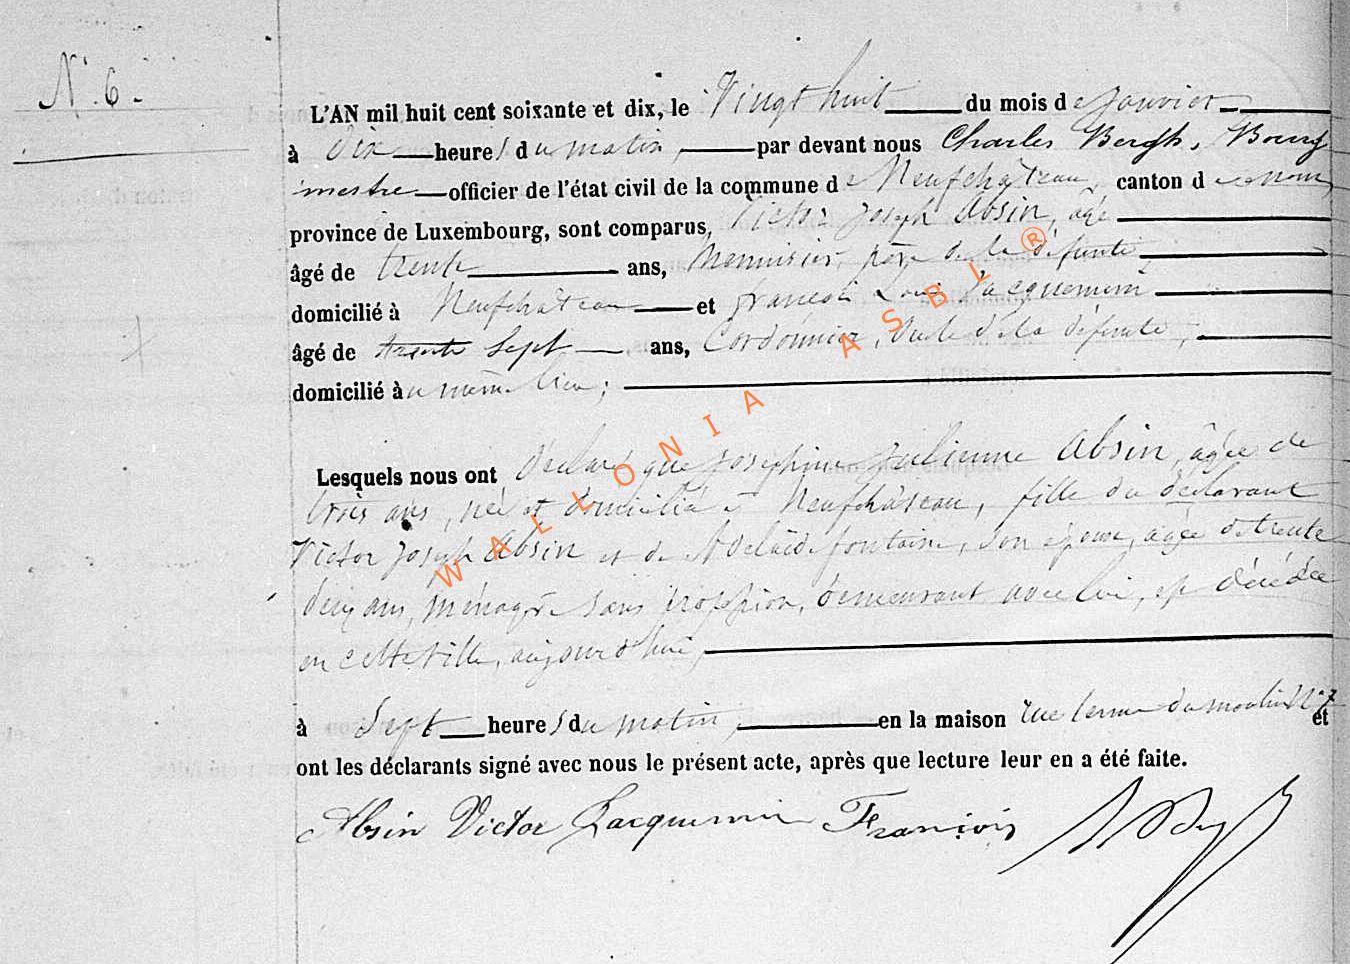 N° 6.
L'AN mil huit cent soixante et dix, le Vingt huit du mois de Janvier
à Dix heures du matin, par devant nous Charles Bergh, Bourg
mestre officier de l'état civil de la commune de Neufchâteau, canton de nom,
province de Luxembourg, sont comparus, Victor Joseph Absin, âgé
âgé de trente ans, Menuisier, père de la défunte,
domicilié à Neufchâteau et François Louis Jacquemin
âgé de trente sept ans, Cordonnier, oncle de la défunte,
domicilié au même lieu;
Lesquels nous ont déclaré que Joséphine Julienne Absin, âgée de
trois ans, née et domiciliée à Neufchâteau, fille du déclarant
Victor Joseph Absin et de Adelaïde fontaine, son épouse, agée de trente
deux ans, ménagère sans profession, demeurant avec lui, est décédée
en cette ville, aujourd'hui,
à Sept heures du matin, en la maison rue du moulin N° 7 et
ont les déclarants signé avec nous le présent acte, après que lecture leur en a été faite.
Absin Victor Jacquemin François
WALLONIA ASBL ®